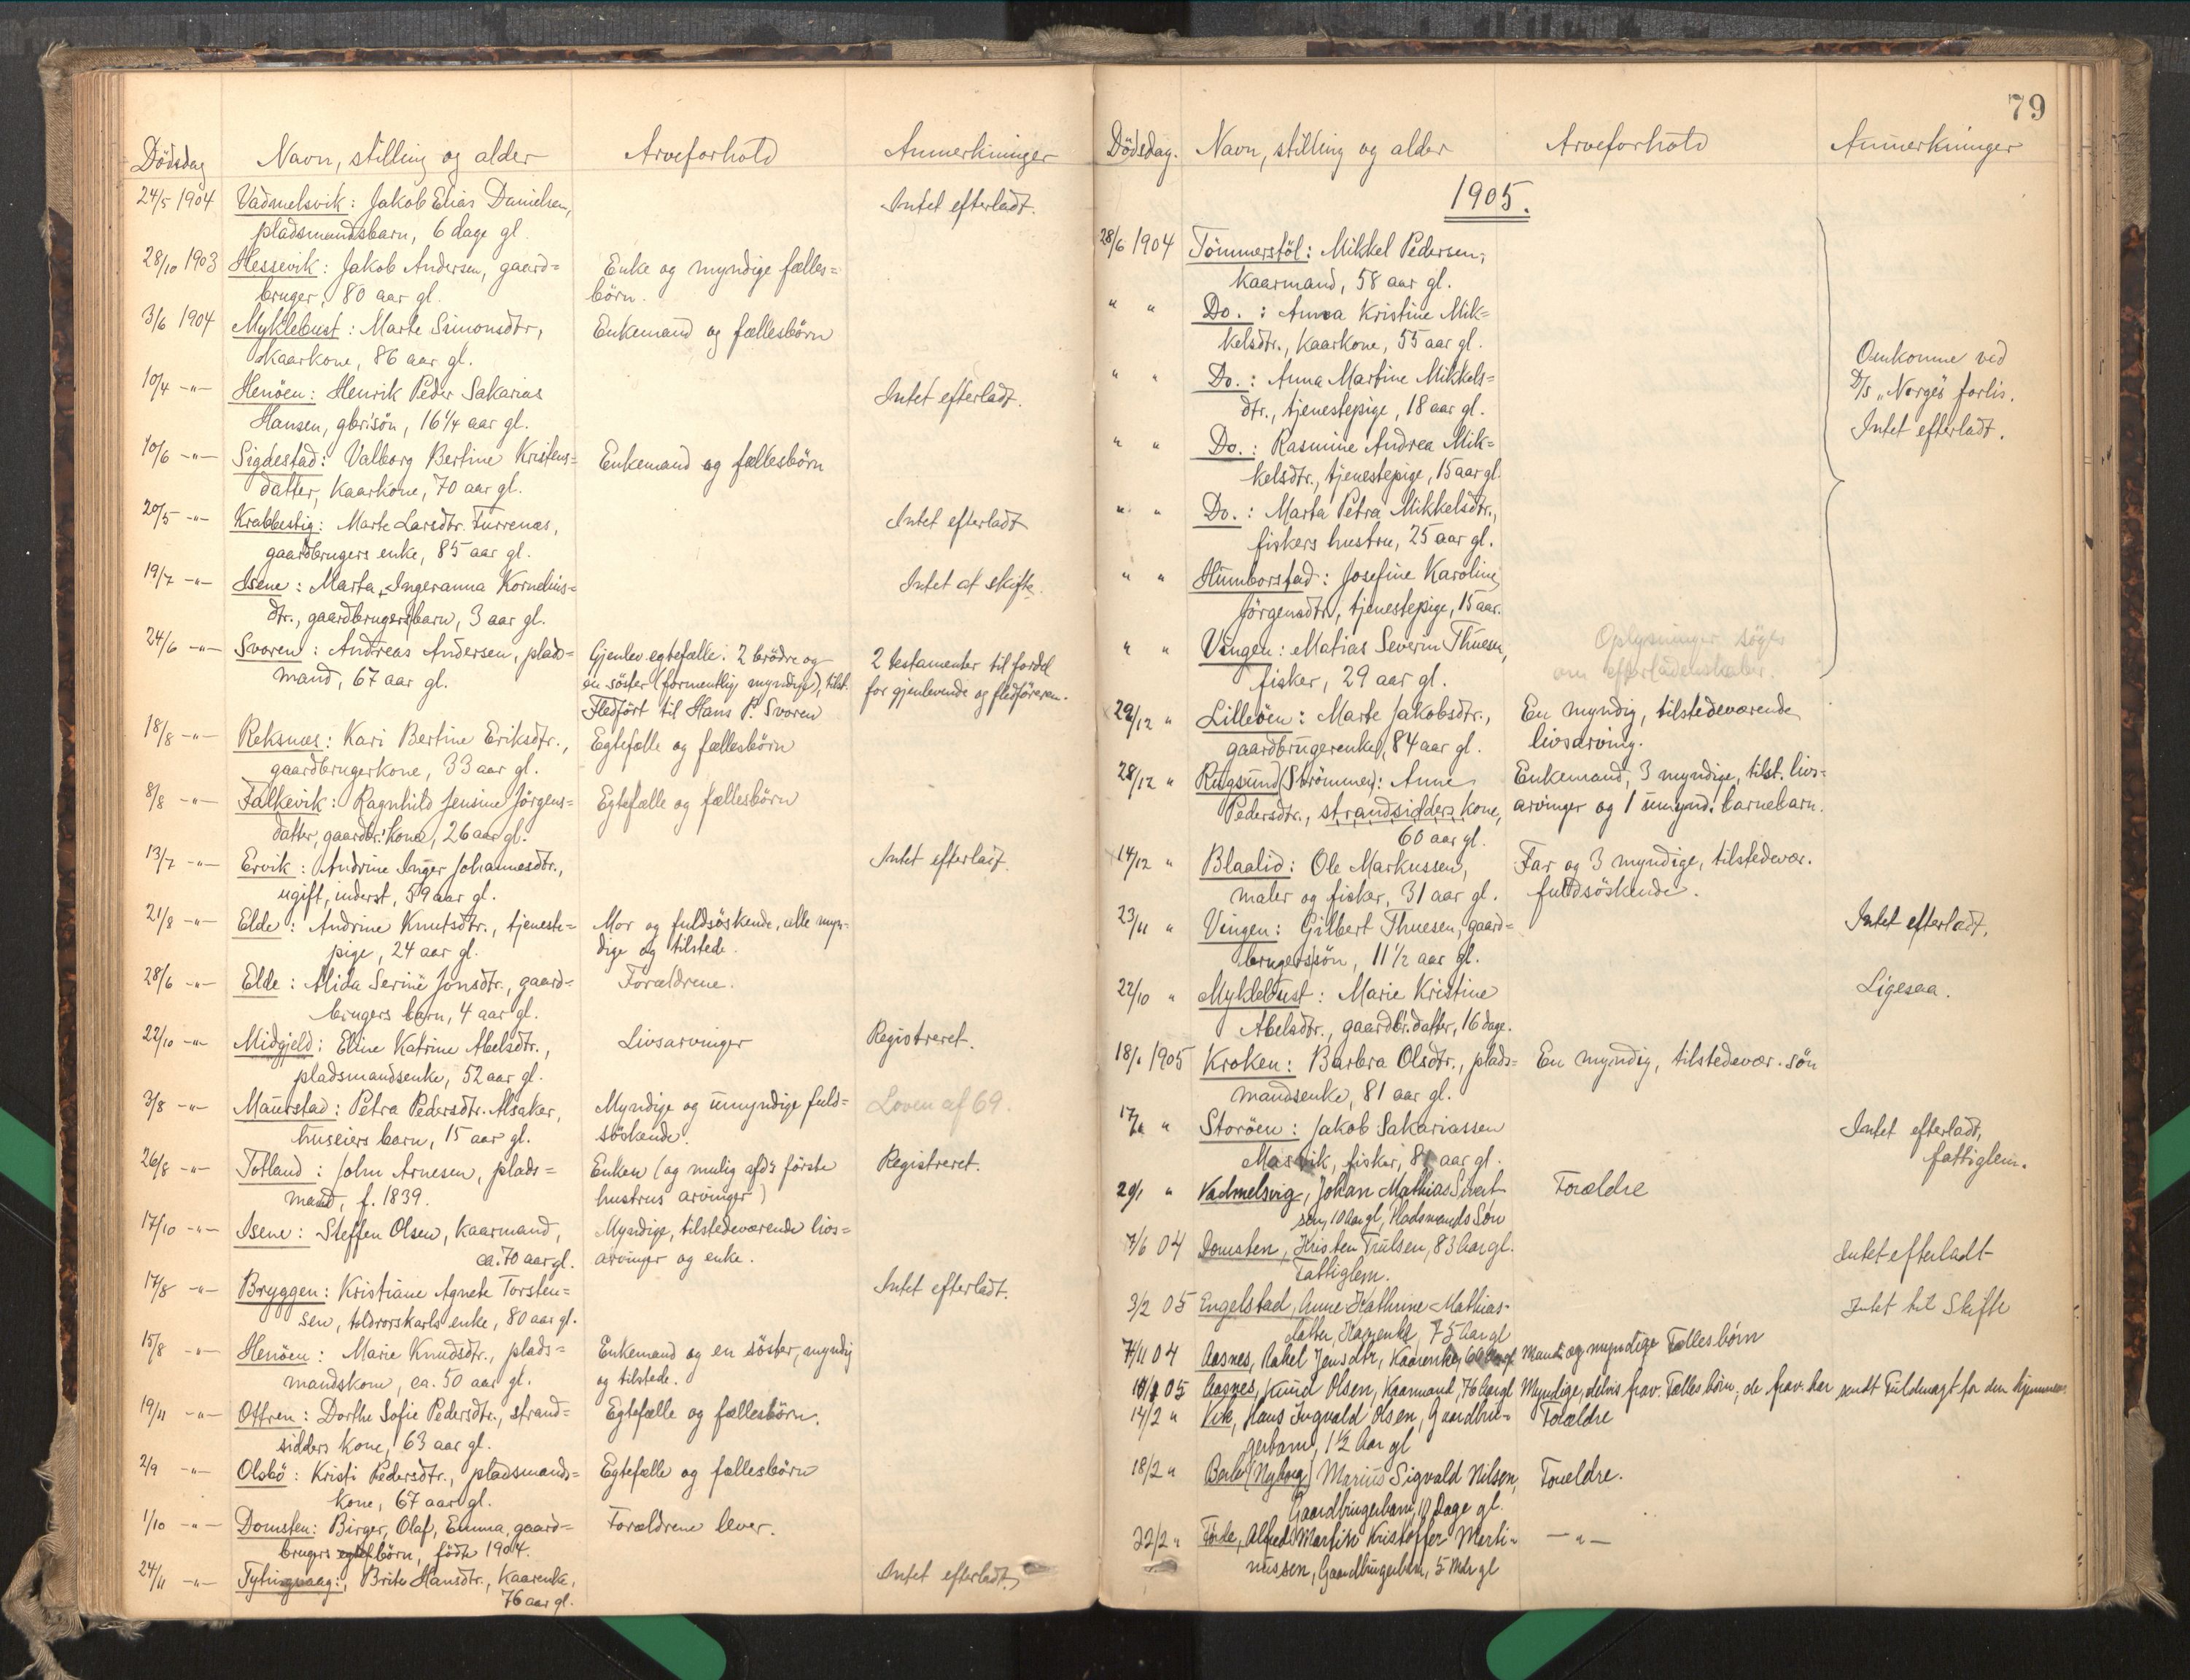 Dödsdag Navn, stilling og alder Arveforhold Anmerkninger
24/5 1904 Vadmelsvik: Jakob Elias Danielsen, Intet efterladt.
pladsmandsbarn, 6 dage gl.
28/10 1903 Hessevik: Jakob Andersen, gaard= Enke og myndige fælles=
bruger, 80 aar gl. börn.
3/6 1904 Myklebust: Marte Simonsdtr, Enkemand og fællesbörn
Kaarkone, 86 aar gl.
10/4 -"- Henöen: Henrik Peder Sakarias Intet efterladt.
Hansen, gbr.'sön, 16 1/4 aar gl.
10/6 -"- Sigdestad: Valborg Bertine Kristens= Enkemand og fællesbörn
datter, Kaarkone, 70 aar gl.
20/5 -"- Krabbestig: Marte Larsdtr. Furrenæs, Intet efterladt
gaardbrugers enke, 85 aar gl.
19/7 -"- Isene: Marta Ingeranna Kornelius= Intet at skifte.
dtr., gaardbrugersbarn, 3 aar gl.
24/6 -"- Svoren: Andreas Andersen, plads= Gjenlev. egtefælle. 2 brödre og 2 testamenter til fordel
mand, 67 aar gl. en söster (formentlig myndige), tilst. for gjenlevende og fledföreren.
Fledfört til Hans P. Svoren
18/8 -"- Reksnæs: Kari Bertine Eriksdtr., Egtefælle og fællesbörn
gaardbrugerkone, 33 aar gl.
8/8 -"- Falkevik: Ragnhild Jensine Jörgens= Egtefælle og fællesbörn
datter, gaardbr.'kone, 26 aar gl.
13/7 -"- Ervik: Andrine Inger Johannesdtr., Intet efterladt.
ugift, inderst, 59 aar gl.
21/8 -"- Elde: Andrine Knutsdtr., tjeneste= Mor og fuldsöskende, alle myn=
pige, 24 aar gl. dige og tilstede.
28/6 -"- Elde: Alida Serine Jonsdtr., gaard= Forældrene.
brugers barn, 4 aar gl.
22/10 -"- Midgjeld: Eline Katrine Abelsdtr., Livsarvinger Registreret.
pladsmandsenke, 52 aar gl.
3/8 -"- Maurstad: Petra Pedersdtr. Alsaker, Myndige og umyndige fuld= Loven af 69.
huseiers barn, 15 aar gl. söskende.
26/8 -"- Totland: John Arnesen, plads= Enken (og mulig afd's förste Registreret.
mand, f. 1839. hustrus arvinger)
17/10 -"- Isene: Steffen Olsen, Kaarmand, Myndige, tilstedeværende livs=
ca. 70 aar gl. arvinger og enke.
17/8 -"- Bryggen: Kristiane Agnete Torsten= Intet efterladt.
sen, toldrorskarls enke, 80 aar gl.
15/8 -"- Henöen: Marie Knudsdtr., plads= Enkemand og en söster, myndig
mandskone, ca. 50 aar gl. og tilstede.
19/11 -"- Ottren: Dorthe Sofie Pedersdtr., strand= Egtefælle og fællesbörn.
sidders kone, 63 aar gl.
2/9 -"- Olsbö: Kristi Pedersdtr., pladsmands= Egtefælle og fællesbörn
kone, 67 aar gl.
1/10 -"- Domsten: Birger, Olaf, Emma, gaard= Forældrene lever.
brugers börn, födte 1904.
24/11 -"- Brite Hansdtr., Kaarenke, Intet efterladt.
76 aar gl.
79
Dödsdag. Navn, stilling og alder Arveforhold Anmerkninger
1905.
28/6 1904 Tömmerstöl: Mikkel Pedersen,
Kaarmand, 58 aar gl.
" " Do.: Anna Kristine Mik=
kelsdtr., Kaarkone, 55 aar gl. Omkomne ved
" " Do.: Anna Martine Mikkels= D/S "Norge"s forlis.
dtr., tjenestepige, 18 aar gl. Intet efterladt.
" " Do.: Rasmine Andrea Mik=
kelsdtr., tjenestepige, 15 aar gl.
" " Do.: Marta Petra Mikkelsdtr.,
fiskers hustru, 25 aar gl.
" " Humborstad: Josefine Karoline
Jörgensdtr., tjenestepige, 15 aar.
" " Vingen: Matias Severin Thuesen, Oplysninger söges
fisker, 29 aar gl. om efterladenskaber.
29/12 " Lilleöen: Marte Jakobsdtr., En myndig, tilstedeværende
gaardbrugerenke, 84 aar gl. livsarving.
28/12 " Rugsund (Strömmen): Anne Enkemand, 3 myndige, tilst. livs=
Pedersdtr., strandsidders kone, arvinger og 1 umynd. barnebarn.
60 aar gl.
14/12 " Blaalid: Ole Markussen, Far og 3 myndige, tilstedevær.
maler og fisker, 31 aar gl. fuldsöskende.
23/11 " Vingen: Gilbert Thuesen, gaard= Intet efterladt.
brugerssön, 11 1/2 aar gl.
22/10 " Myklebust: Marie Kristine Ligesaa.
Abelsdtr., gaardbr.datter, 16 dage.
18/1 1905 Kroken: Barbra Olsdtr., plads= En myndig, tilstedevær. sön
mandsenke, 81 aar gl.
" Storöen: Jakob Sakariassen Intet efterladt,
Marvik, fisker, 81 aar gl. fattiglem.
29/1 " Vadmelsvig, Johan Mathias Sivert Forældre
sen, 10 Aar gl, Pladsmands Søn
7/6 04 Domsten, Kristen Trulsen, 83 Aar gl. Intet efterladt
Fattiglem.
3/2 05 Engelstad, Anne Kathrine Mathias- Intet til Skifte
datter, Kaarenke, 75 Aar gl
7/11 04 Aasnes, Rakel Jensdtr, Mand og myndige Fællesbörn
05 Aasnes, Knud Olsen, Kaarmand, 76 Aar gl Myndige, delvis frav. Fællesbörn, de frav. har sendt Fuldmagt for den
14/2 " Vik, Hans Ingvald Olsen, Gaardbru- Forældre
gerbarn, 1 1/2 Aar gl
18/2 " Berle (Nyborg) Marius Sigvald Nilsen, Forældre.
Gaardbrugerbarn, 10 Dage gl.
22/2 " Förde, Alfred Martin Kristoffer Marti- -"-
nussen, Gaardbrugerbarn, 5 Mdr gl